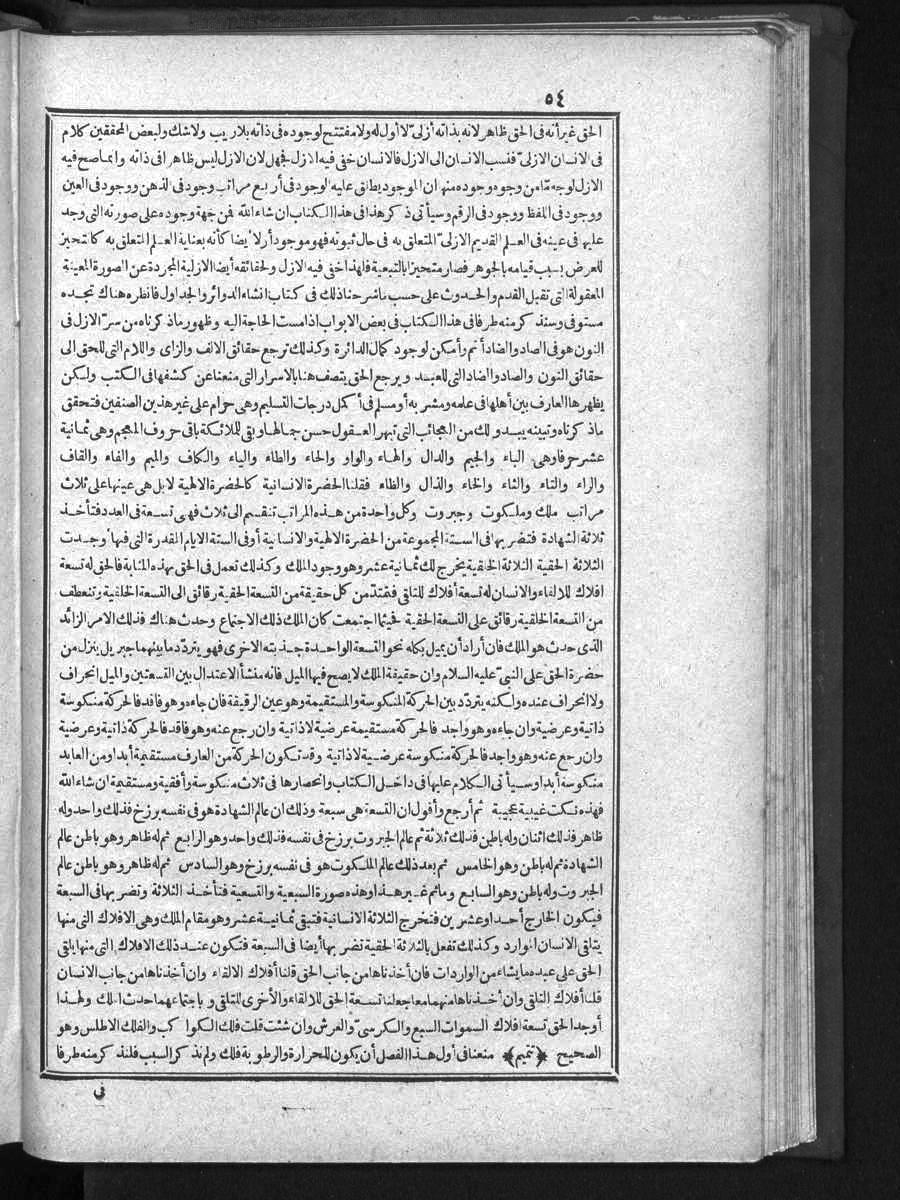 ٥٤
الحق غير أنه فى الحق ظاهر لانه بذاته أزلىّ لا أول له ولا مفتتح لوجوده فى ذاته بلا ريب ولا شك ولبعض المحققين كلام
فى الانسان الازلىّ فنسب الانسان الى الازل فالانسان خفى فيه الازل فجهل لان الازل ليس ظاهرا فى ذاته وانما صح فيه
الازل لوجه مّا من وجوه وجوده منها ان الموجود يطلق عليه الوجود فى أربع مراتب وجود فى الذهن ووجود فى العين
ووجود فى اللفظ ووجود فى الرقم وسيأتى ذكر هذا فى هذا الكتاب ان شاء الله فمن جهة وجوده على صورته التى وجد
عليها فى عينه فى العلم القديم الازلىّ المتعلق به فى حال ثبوته فهو موجود أزلا أيضا كأنه بعناية العلم المتعلق به كالتحيز
للعرض بسبب قيامه بالجوهر فصار متحيزا بالتبعية فلهذا خفى فيه الازل ولحقائقه أيضا الازلية المجردة عن الصورة المعينة
المعقولة التى تقبل القدم والحدوث على حسب ما شرحنا ذلك فى كتاب انشاء الدوائر والجداول فانظره هناك تجده
مستوفى وسنذكر منه طرفا فى هذا الكتاب فى بعض الابواب اذا مست الحاجة اليه وظهور ما ذكرناه من سرّ الازل فى
النون هو فى الصاد والضاد أتم وأمكن لوجود كمال الدائرة وكذلك ترجع حقائق الالف والزاى واللام التى للحق الى
حقائق النون والصاد والضاد التى للعبد ويرجع الحق يتصف هنا بالاسرار التى منعنا عن كشفها فى الكتب ولكن
يظهرها العارف بين أهلها فى علمه ومشربه أو مسلم فى أكمل درجات التسليم وهى حرام على غير هذين الصنفين فتحقق
ما ذكرناه وتبينه يبدو لك من العجائب التى تبهر العقول حسن جمالها وبقى للملائكة باقى حروف المعجم وهى ثمانية
عشر حرفا وهى الباء والجيم والدال والهاء والواو والحاء والطاء والياء والكاف والميم والفاء والقاف
والراء والتاء والثاء والخاء والذال والظاء فقلنا الحضرة الانسانية كالحضرة الالهية لا بل هى عينها على ثلاث
مراتب ملك وملكوت وجبروت وكل واحدة من هذه المراتب تنقسم الى ثلاث فهى تسعة فى العدد فتأخذ
ثلاثة الشهادة فتضربها فى الستة المجموعة من الحضرة الالهية والانسانية أو فى الستة الايام المقدرة التى فيها وجدت
الثلاثة الحقية الثلاثة الخلقية يخرج لك ثمانية عشر وهو وجود الملك وكذلك تعمل فى الحق بهذه المثابة فالحق له تسعة
افلاك للالقاء والانسان له تسعة أفلاك للتلقى فتمتدّ من كل حقيقة من التسعة الحقية رقائق الى التسعة الخلقية وتنعطف
من التسعة الخلقية رقائق على التسعة الحقية فحيثما اجتمعت كان الملك ذلك الاجتماع وحدث هناك فذلك الامر الزائد
الذى حدث هو الملك فان أراد أن يميل بكله نحو التسعة الواحدة جذبته الاخرى فهو يتردّد ما بينهما جبريل ينزل من
حضرة الحق على النبىّ عليه السلام وان حقيقة الملك لا يصح فيها الميل فانه منشأ الاعتدال بين التسعتين والميل انحراف
ولا انحراف عنده ولكنه يتردّد بين الحركة المنكوسة والمستقيمة وهو عين الرقيقة فان جاءه وهو فاقد فالحركة منكوسة
ذاتية وعرضية وان جاءه وهو واجد فالحركة مستقيمة عرضية لا ذاتية وان رجع عنه وهو فاقد فالحركة ذاتية وعرضية
وان رجع عنه وهو واجد فالحركة منكوسة عرضية لا ذاتية وقد تكون الحركة من العارف مستقيمة أبدا ومن العابد
منكوسة أبدا وسيأتى الكلام عليها فى داخل الكتاب وانحصارها فى ثلاث منكوسة وأفقية ومستقيمة ان شاء الله
فهذه نكت غيبية عجيبة ثم أرجع وأقول ان التسعة هى سبعة وذلك ان عالم الشهادة هو فى نفسه برزخ فذلك واحد وله
ظاهر فذلك اثنان وله باطن فذلك ثلاثة ثم عالم الجبروت برزخ فى نفسه فذلك واحد وهو الرابع ثم له ظاهر وهو باطن عالم
الشهادة ثم له باطن وهو الخامس ثم بعد ذلك عالم الملكوت هو فى نفسه برزخ وهو السادس ثم له ظاهر وهو باطن عالم
الجبروت وله باطن وهو السابع وما ثم غير هذا وهذه صورة السبعية والتسعية فتأخذ الثلاثة وتضربها فى السبعة
فيكون الخارج أحدا وعشرين فتخرج الثلاثة الانسانية فتبقى ثمانية عشر وهو مقام الملك وهى الافلاك التى منها
يتلقى الانسان الموارد وكذلك تفعل بالثلاثة الحقية تضربها أيضا فى السبعة فتكون عند ذلك الافلاك التى منها يلقى
الحق على عبده ما يشاء من الواردات فان أخذناها من جانب الحق قلنا أفلاك الالقاء وان أخذناها من جانب الانسان
قلنا أفلاك التلقى وان أخذناها منهما معا جعلنا تسعة الحق للالقاء والأخرى للتلقى وباجتماعهما حدث الملك ولهذا
أوجد الحق تسعة افلاك السموات السبع والكرسىّ والعرش وان شئت قلت فلك الكواكب والفلك الاطلس وهو
الصحيح ﴿تتميم﴾ منعنا فى أول هذا الفصل أن يكون للحرارة والرطوبة فلك ولم نذكر السبب فلنذكر منه طرفا
فى